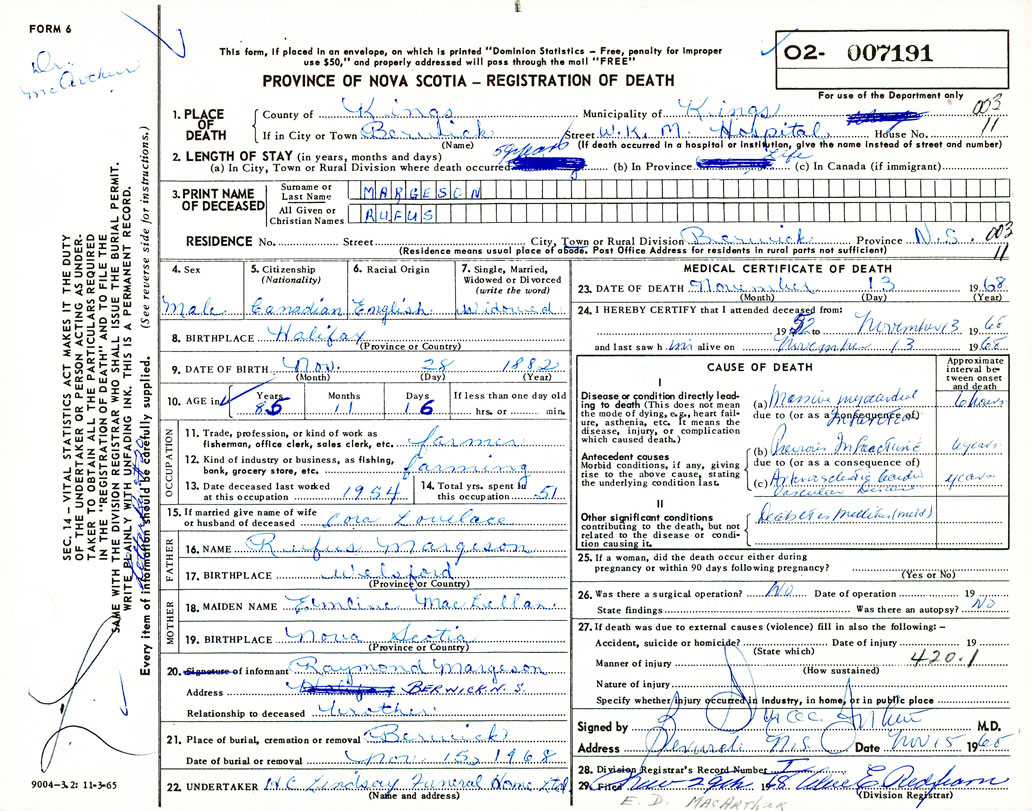 FORM 6
Dr.
McArthur
This form, if placed in an envelope, on which is printed "Dominion Statistics – Free, penalty for improper
use $50," and properly addressed will pass through the mail "FREE"
PROVINCE OF NOVA SCOTIA – REGISTRATION OF DEATH
O2- 007191
For use of the Department only
003
11
1. PLACE OF DEATH County of Kings Municipality of Kings
If in City or Town Berwick Street W.K.M. Hospital House No.
(Name) (If death occurred in a hospital or institution, give the name instead of street and number)
2. LENGTH OF STAY (in years, months and days)
(a) In City, Town or Rural Division where death occurred 59 years (b) In Province Life (c) In Canada (if immigrant)
3. PRINT NAME OF DECEASED Surname or Last Name MARGESON
All Given or Christian Names RUFUS
RESIDENCE No. Street City, Town or Rural Division Berwick Province N.S. 003
(Residence means usual place of abode. Post Office Address for residents in rural parts not sufficient) 11
4. Sex 5. Citizenship (Nationality) 6. Racial Origin 7. Single, Married, Widowed or Divorced (write the word)
Male Canadian English Widowed
8. BIRTHPLACE Halifax
(Province or Country)
9. DATE OF BIRTH Nov. 28 1882
(Month) (Day) (Year)
10. AGE in Years Months Days If less than one day old
85 11 16 hrs. or min.
OCCUPATION
11. Trade, profession, or kind of work as fisherman, office clerk, sales clerk, etc. farmer
12. Kind of industry or business, as fishing, bank, grocery store, etc. farming
13. Date deceased last worked at this occupation 1954 14. Total yrs. spent in this occupation 51
15. If married give name of wife or husband of deceased Cora Lovelace
FATHER
16. NAME Rufus Margeson
17. BIRTHPLACE Welsford
(Province or Country)
MOTHER
18. MAIDEN NAME MacLellan
19. BIRTHPLACE Nova Scotia
(Province or Country)
20. Signature of informant Raymond Margeson
Address Halifax BERWICK N.S.
Relationship to deceased brother
21. Place of burial, cremation or removal Berwick
Date of burial or removal Nov. 15, 1968
22. UNDERTAKER H.C. Lindsay Funeral Home Ltd
(Name and address)
MEDICAL CERTIFICATE OF DEATH
23. DATE OF DEATH November 13 1968
(Month) (Day) (Year)
24. I HEREBY CERTIFY that I attended deceased from:
1952 to November 13 1968
and last saw him alive on November 13 1968
CAUSE OF DEATH
Approximate interval between onset and death
I
Disease or condition directly leading to death (This does not mean the mode of dying, e.g., heart failure, asthenia, etc. It means the disease, injury, or complication which caused death.)
(a) Massive myocardial Infarction 6 hours
due to (or as a consequence of)
Antecedent causes
Morbid conditions, if any, giving rise to the above cause, stating the underlying condition last.
(b) Previous Infarction years
due to (or as a consequence of)
(c) Vascular Disease years
II
Other significant conditions contributing to the death, but not related to the disease or condition causing it.
Diabetes Mellitus (mild)
25. If a woman, did the death occur either during pregnancy or within 90 days following pregnancy?
(Yes or No)
26. Was there a surgical operation? No Date of operation 19
State findings Was there an autopsy? No
27. If death was due to external causes (violence) fill in also the following:–
Accident, suicide or homicide? Date of injury 19
(State which)
Manner of injury 420.1
(How sustained)
Nature of injury
Specify whether injury occurred in industry, in home, or in public place
Signed by M.D.
Address N.S. Date Nov 15 1968
28. Division Registrar's Record Number
29. Filed Nov 29th 1968
(Division Registrar)
E. D. MACARTHUR
SEC. 14 – VITAL STATISTICS ACT MAKES IT THE DUTY
OF THE UNDERTAKER OR PERSON ACTING AS UNDER-
TAKER TO OBTAIN ALL THE PARTICULARS REQUIRED
IN THE "REGISTRATION OF DEATH" AND TO FILE THE
SAME WITH THE DIVISION REGISTRAR WHO SHALL ISSUE THE BURIAL PERMIT.
WRITE PLAINLY WITH UNFADING INK. THIS IS A PERMANENT RECORD.
Every item of information should be carefully supplied. (See reverse side for instructions.)
9004–3.2: 11-3-65